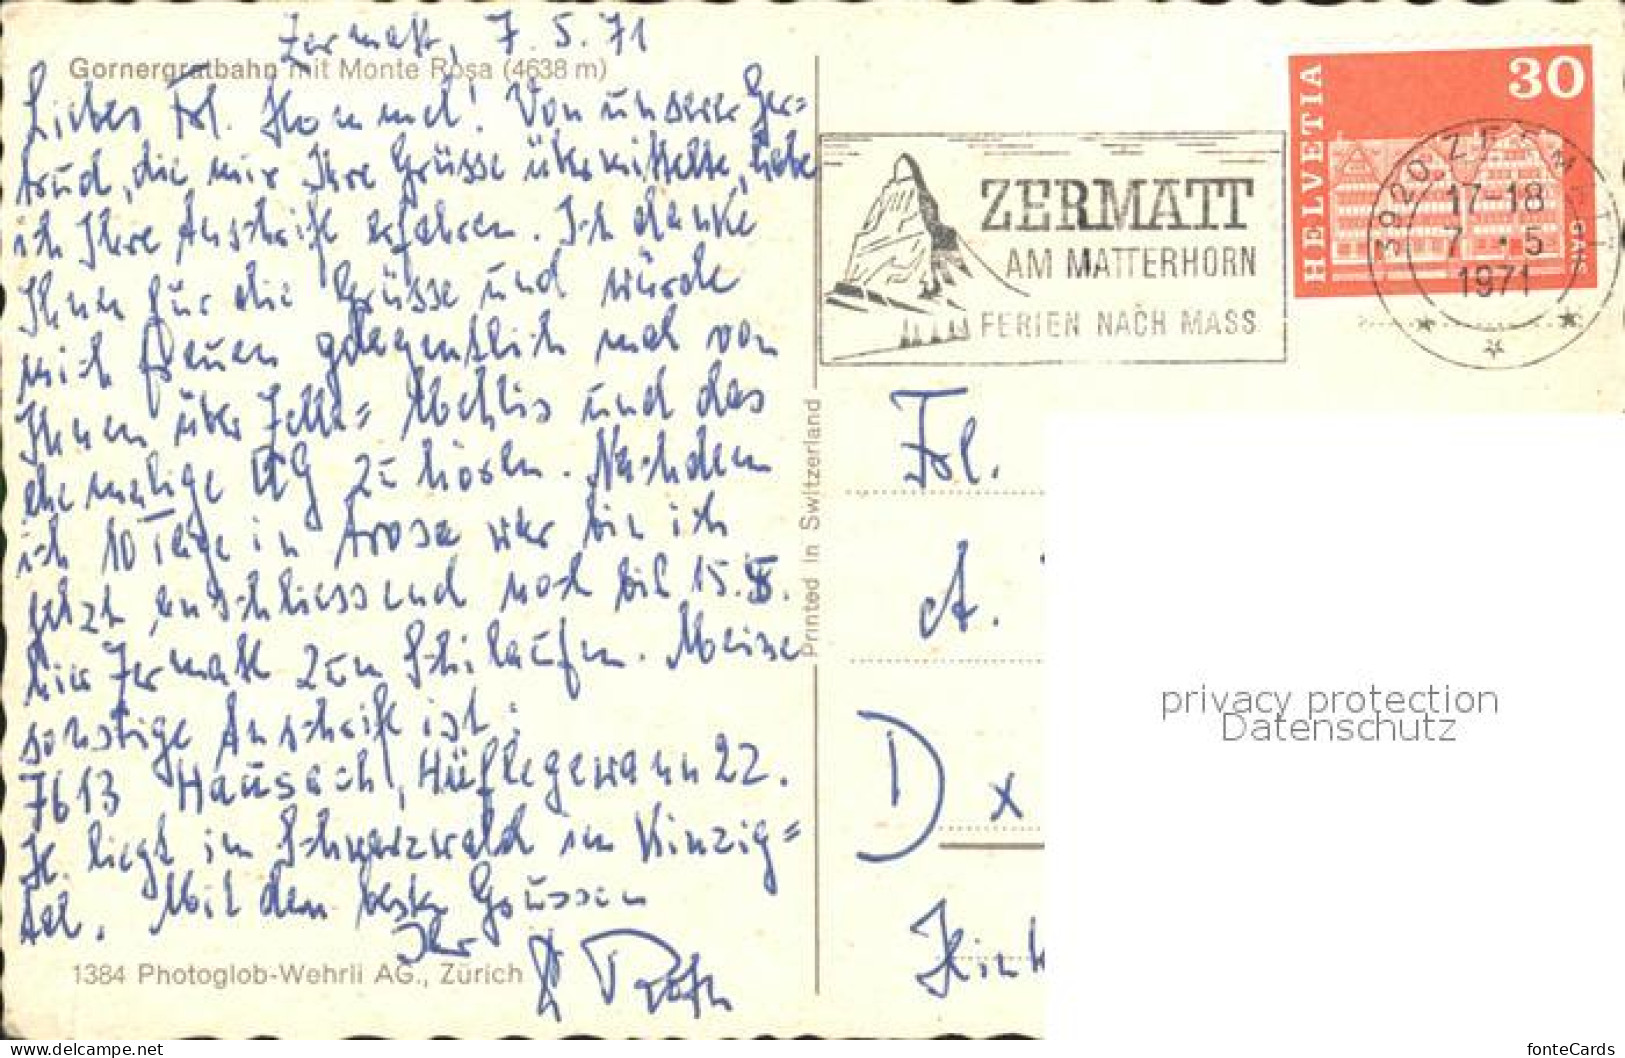 Zermatt, 7.5.71
Gornergratbahn mit Monte Rosa (4638 m)
Liebes Frl. Hommel! Von unserer Ger=
trud, die mir Ihre Grüsse übermittelte, habe
ich Ihre Anschrift erfahren. Ich danke
Ihnen für die Grüsse und würde
mich freuen gelegentlich mal von
Ihnen über Zella= Mehlis und das
ehemalige RG zu hören. Nachdem
ich 10 Tage in Arosa war bin ich
jetzt anschliessend noch bis 15.V.
hier Zermatt zum Skilaufen. Meine
sonstige Anschrift ist:
7613 Hausach, Hüflegewann 22.
H. liegt im Schwarzwald im Kinzig=
tal. Mit den besten Grüssen
Ihr
1384 Photoglob-Wehrli AG., Zürich
Printed in Switzerland
ZERMATT
AM MATTERHORN
FERIEN NACH MASS
HELVETIA
30
GAIS
3920 ZERMATT
17-18
7.-5
1971
Frl.
A.
D x
privacy protection
Datenschutz
https://www.delcampe.net
fonteCards